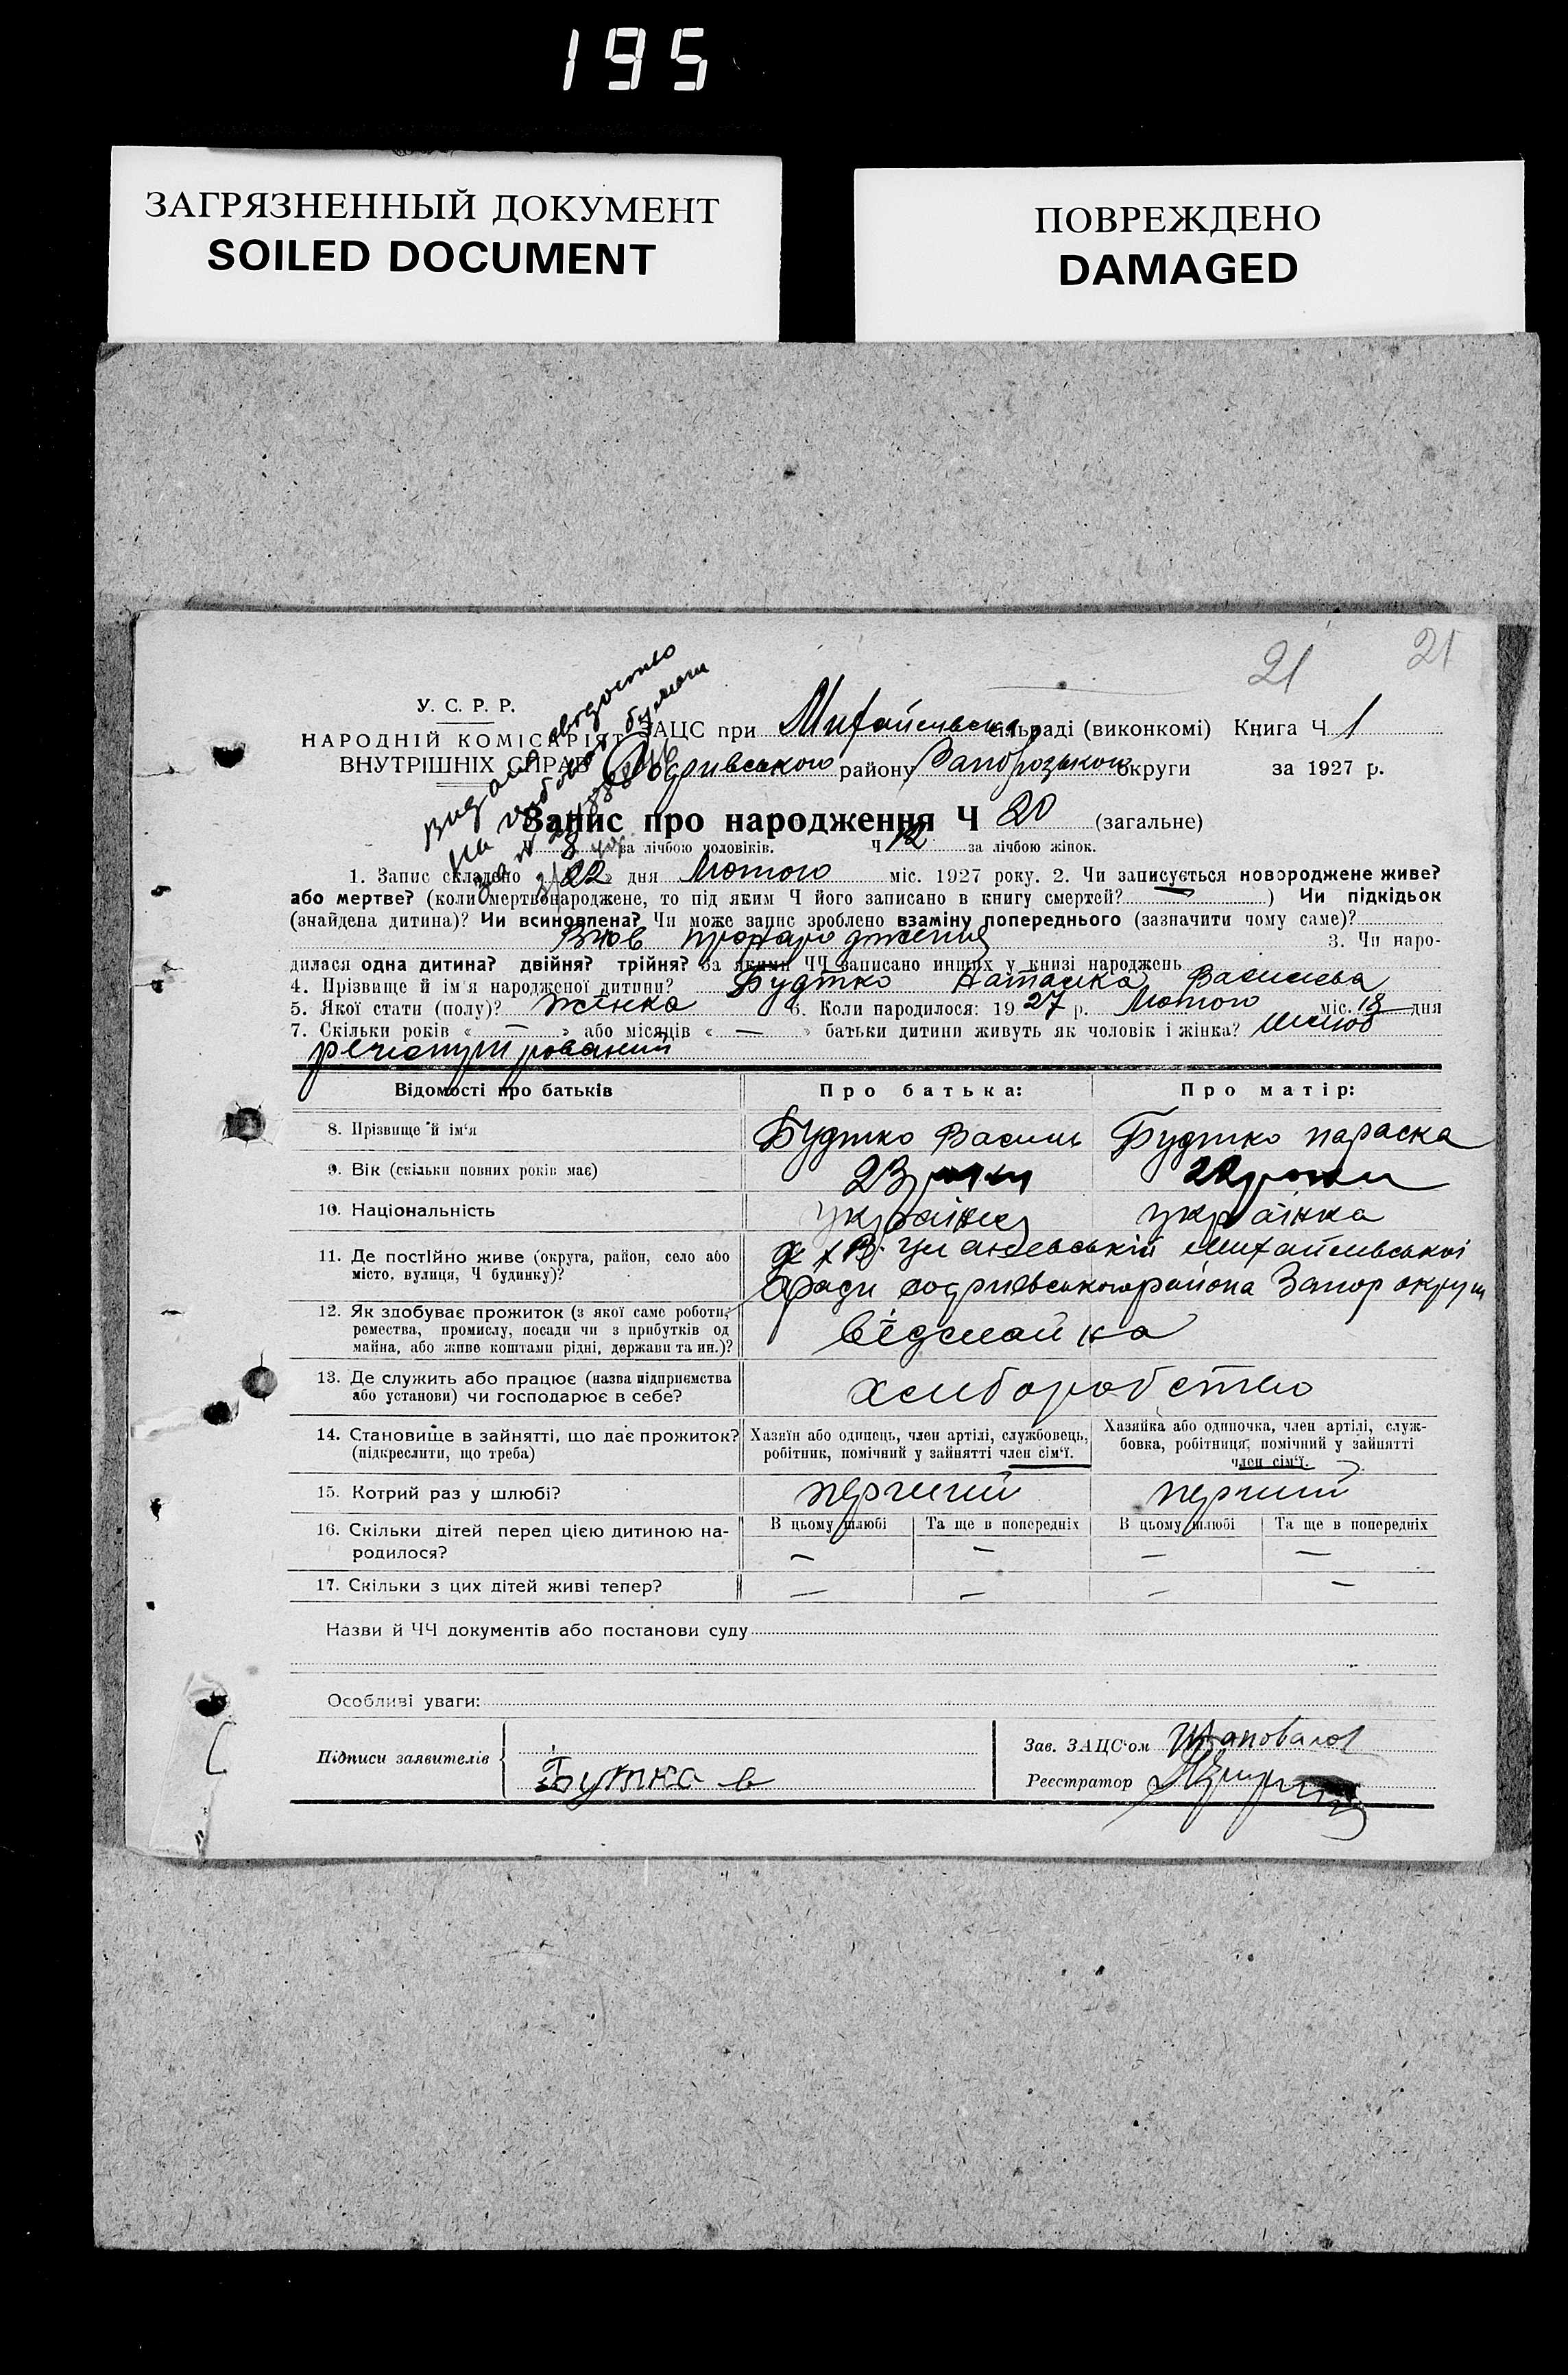 195
ЗАГРЯЗНЕННЫЙ ДОКУМЕНТ
SOILED DOCUMENT
ПОВРЕЖДЕНО
DAMAGED
21 21
У. С. Р. Р.
НАРОДНІЙ КОМІСАРІЯТ
ВНУТРІШНІХ СПРАВ
Видано
на
ЗАЦС при Михайлівська сільраді (виконкомі) Книга Ч 1
району Запорозької округи за 1927 р.
Запис про народження Ч 20 (загальне)
Ч 8 за лічбою чоловіків. Ч 12 за лічбою жінок.
1. Запис складено «22» дня Лютого міс. 1927 року. 2. Чи записується новороджене живе?
або мертве? (коли мертвонароджене, то під яким Ч його записано в книгу смертей? — ) Чи підкідьок
(знайдена дитина)? Чи всиновлена? Чи може запис зроблено взаміну попереднього (зазначити чому саме)?
3. Чи наро-
дилася одна дитина? двійня? трійня? За якими ЧЧ записано инших у книзі народжень
4. Прізвище й ім'я народженої дитини? Будтко Наташка Василева
5. Якої стати (полу)? жінка 6. Коли народилося: 1927 р. Лютого міс. 18 дня
7. Скільки років « — » або місяців « — » батьки дитини живуть як чоловік і жінка? Шлюб
Відомості про батьків Про батька: Про матір:
8. Прізвище й ім'я Будтко Василь Будтко параска
9. Вік (скільки повних років має) 23 роки 22 роки
10. Національність українец українка
11. Де постійно живе (округа, район, село або
місто, вулиця, Ч будинку)?
Михайлівської
района Запор округи
12. Як здобуває прожиток (з якої саме роботи,
ремества, промислу, посади чи з прибутків од
майна, або живе коштами рідні, держави та ин.)?
від майна
13. Де служить або працює (назва підприємства
або установи) чи господарює в себе?
хлиборобство
14. Становище в зайнятті, що дає прожиток?
(підкреслити, що треба)
Хазяїн або одинець, член артілі, службовець,
робітник, помічний у зайнятті член сім'ї.
Хазяйка або одиночка, член артілі, служ-
бовка, робітниця, помічний у зайнятті
член сім'ї.
15. Котрий раз у шлюбі? перший перший
16. Скільки дітей перед цією дитиною на-
родилося?
В цьому шлюбі Та ще в попередніх В цьому шлюбі Та ще в попередніх
— — — —
17. Скільки з цих дітей живі тепер? — — — —
Назви й ЧЧ документів або постанови суду
Особливі уваги:
Підписи заявителів Бутко в
Зав. ЗАЦС'ом Шаповалов
Реєстратор